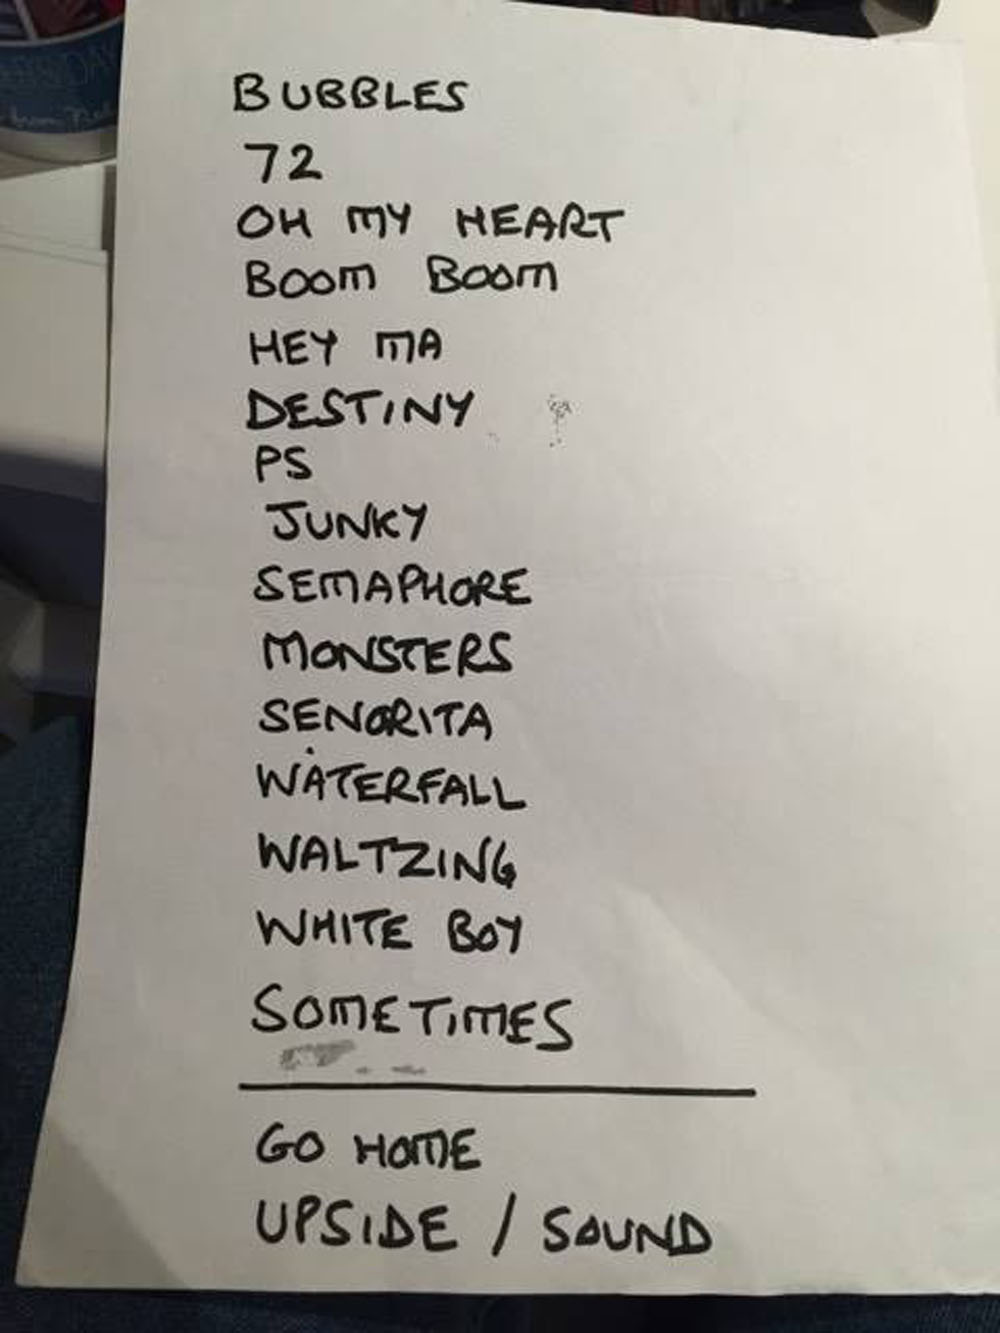 BUBBLES
72
OH MY HEART
BOOM BOOM
HEY MA
DESTINY
PS
JUNKY
SEMAPHORE
MONSTERS
SENORITA
WATERFALL
WALTZING
WHITE BOY
SOMETIMES
GO HOME
UPSIDE / SOUND